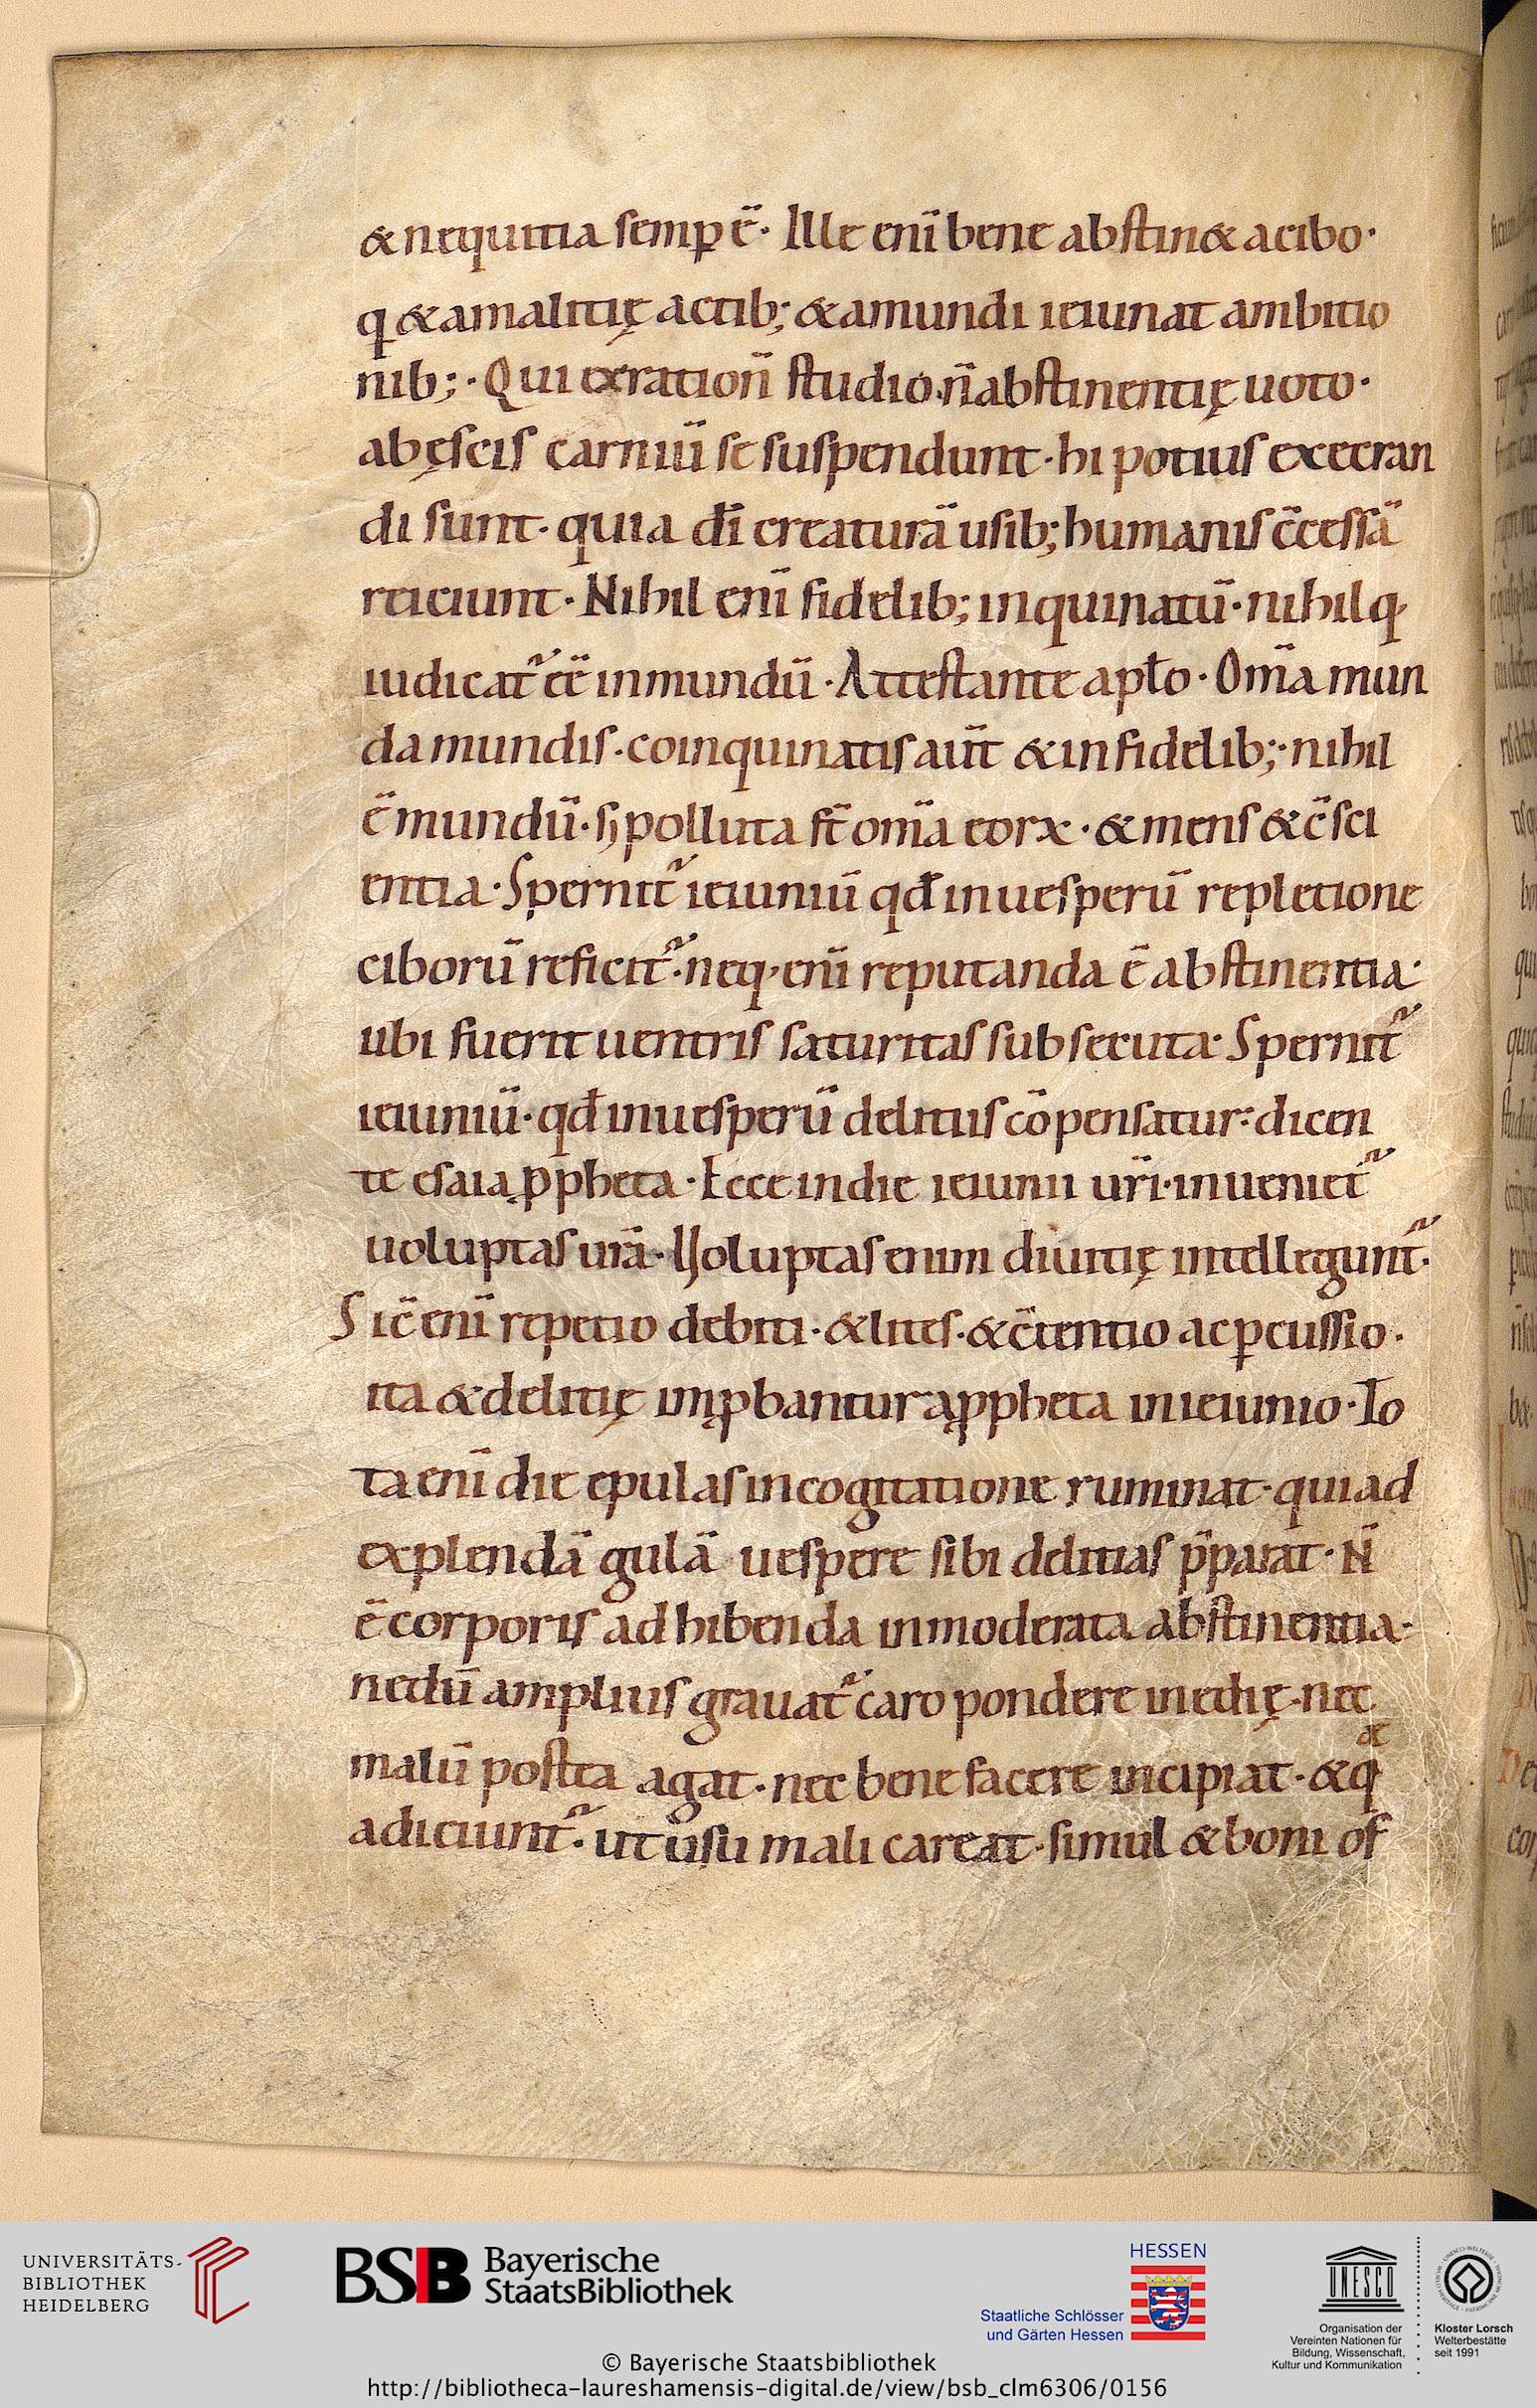 & nequitia semp ē· Ille enī bene abstin& acibo·
q &amalitię actib; &amundi ieiunat ambitio
nib;· Qui exration̄ studio·n̄ abstinentię uoto·
abęscis carniū se suspendunt· hi potius execran
di sunt· quia dī creaturā usib; humanis c̄cessā
reiciunt· Nihil enī fidelib; inquinatū· nihil q·
iudicat̄ eē inmundū· Attestante aplo· Om̄a mun
da mundis· coinquinatis aūt &infidelib;· nihil
ē mundū· sꝫ polluta st̄ om̄a eorx· &mens &c̄sci
entia· Spernit̄ ieiuniū qđ inuesperū repletione
ciborū reficit̄· neq· enī reputanda ē abstinentia·
ubi fuerit uentris saturitas subsecuta· Spernit̄
ieiuniū· qđ inuesperū delitiis cōpensatur· dicen
te esaia ꝓpheta· Ecce indie ieiunii ur̄i· inueniet̄
uoluptas ur̄a· Uoluptas enim diuitię intellegunt̄·
Sic̄ enī repetio debiti· &lites· &c̄tentio ac ꝑcussio·
ita &delitię imꝓbantur aꝓpheta inieiunio· To
ta enī die epulas incogitatione ruminat· qui ad
explendā gulā uespere sibi delitias p̄parat· N̄
ē corporis adhibenda inmoderata abstinentia·
nedū amplius grauat̄ caro pondere inedię· nec
malū postea agat· nec bene facere incipiat· &q
adiciunt̄· ut usu mali careat· simul &boni of
UNIVERSITÄTS-
BIBLIOTHEK
HEIDELBERG
BSB Bayerische
StaatsBibliothek
HESSEN
Staatliche Schlösser
und Gärten Hessen
UNESCO
Organisation der
Vereinten Nationen für
Bildung, Wissenschaft,
Kultur und Kommunikation
Kloster Lorsch
Welterbestätte
seit 1991
© Bayerische Staatsbibliothek
http://bibliotheca-laureshamensis-digital.de/view/bsb_clm6306/0156